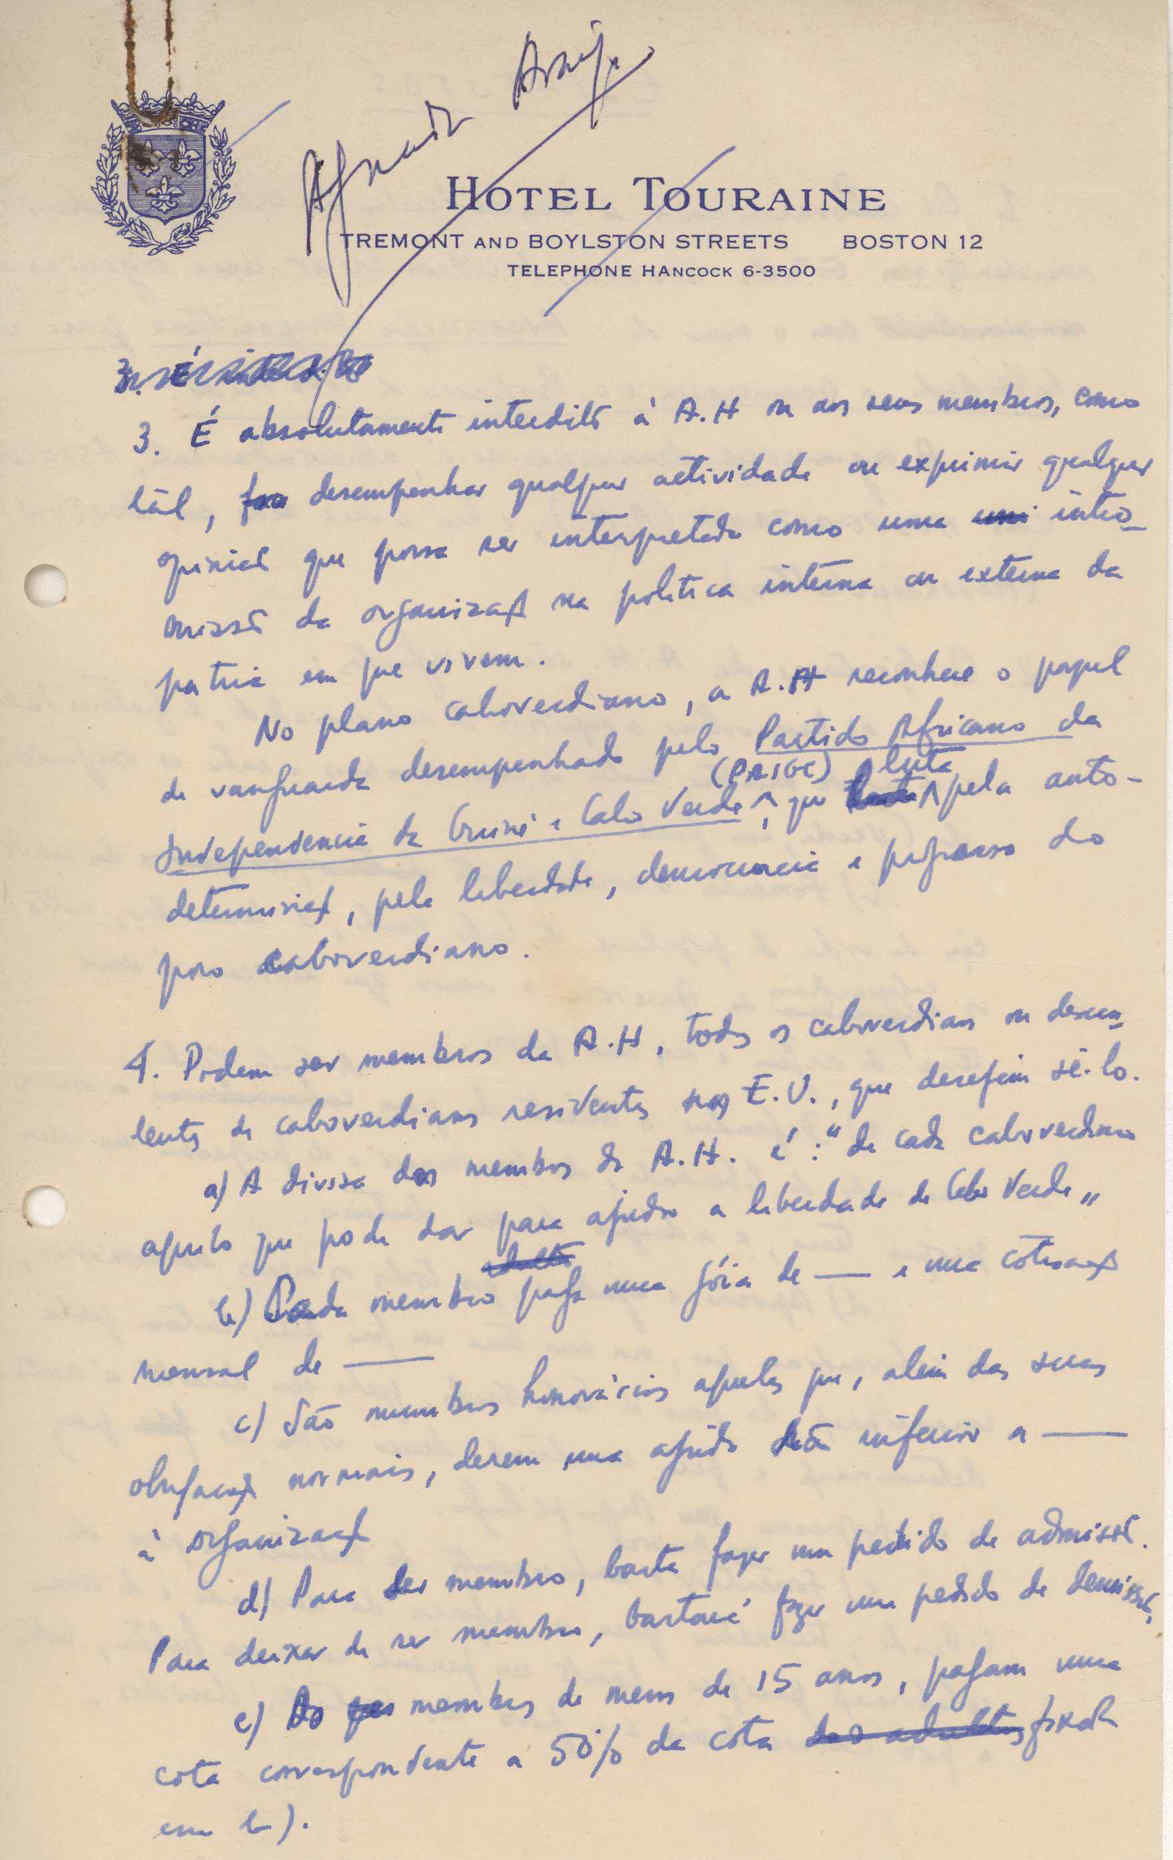 Araújo
HOTEL TOURAINE
TREMONT AND BOYLSTON STREETS BOSTON 12
TELEPHONE HANCOCK 6-3500
3. É absolutamente interdito à A.H ou aos seus membros, como
tal, desempenhar qualquer actividade ou exprimir qualquer
opinião que possa ser interpretada como uma intro-
missão da organização na politica interna ou externa da
patria em que vivem.
No plano caboverdiano, a A.H reconhece o papel
de vanguarda desempenhado pelo Partido Africano da
Independencia da Guiné e Cabo Verde (PAIGC), que luta pela auto-
determinação, pela liberdade, democracia e progresso do
povo caboverdiano.
4. Podem ser membros da A.H, todos os caboverdianos ou descen-
lentes de caboverdianos residentes nos E.U., que desejem sê-lo.
a) A divisa dos membros da A.H. é: "de cada caboverdiano
aquilo que pode dar para ajudar a liberdade de Cabo Verde"
b) Cada membro adulto paga uma jóia de — e uma cotização
mensal de —
c) São membros honorários aqueles que, além das suas
obrigações normais, derem uma ajuda não inferior a —
à organização
d) Para ser membro, basta fazer um pedido de admissão.
Para deixar de ser membro, bastará fazer um pedido de demissão.
e) Os membros de menos de 15 anos, pagam uma
cota correspondente a 50% da cota dos adultos fixada
em b).